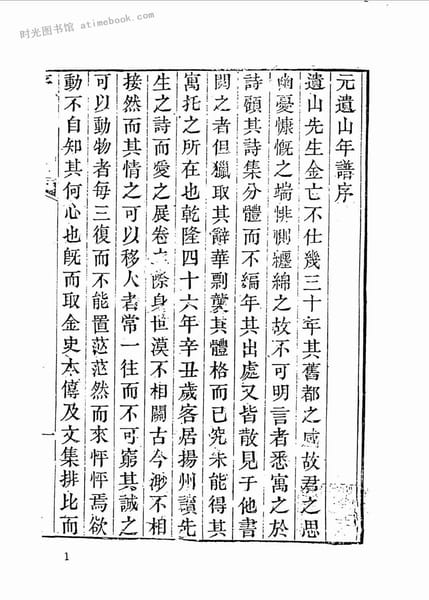 时光图书馆 - atimebook.com
元遺山年譜序
遺山先生金亡不仕幾三十年其舊都之感故君之思
幽憂慷慨之端悱惻纏綿之故不可明言者悉寓之於
詩顧其詩集分體而不編年其出處又皆散見于他書
閱之者但獵取其辭華剽襲其體格而已究未能得其
寓托之所在也乾隆四十六年辛丑歲客居揚州讀先
生之詩而愛之展卷之際身世漠不相關古今渺不相
接然而其情之可以移人者常一往而不可窮其誠之
可以動物者每三復而不能置茫茫然而來怦怦焉欲
動不自知其何心也旣而取金史本傳及文集排比而
一
1